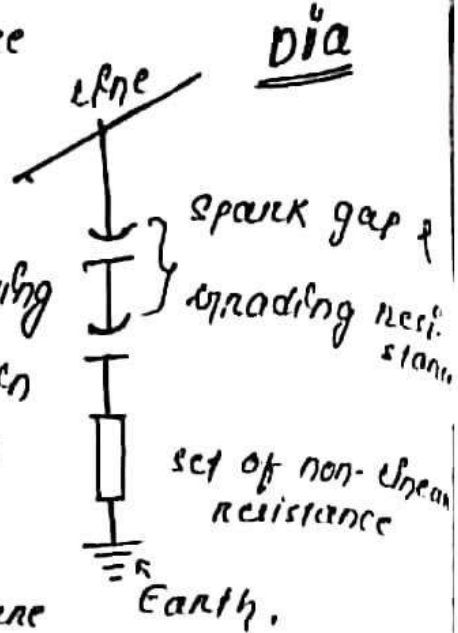 Dia
line
spark gap &
grading resi.
stan
set of non-linear
resistance
Earth.